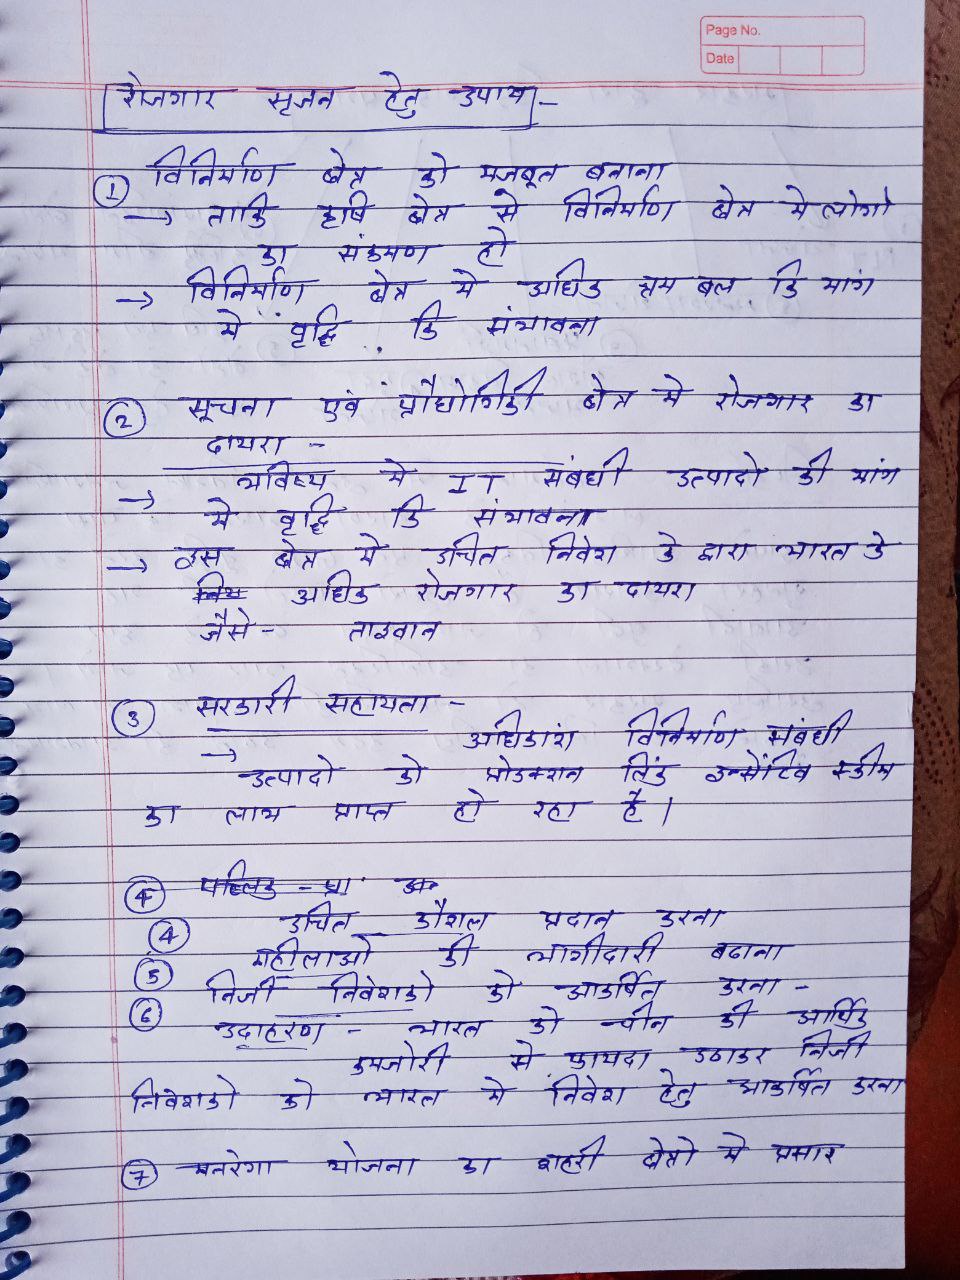 Page No.
Date
रोजगार सृजन हेतु उपाय -
① विनिर्माण क्षेत्र को मजबूत बनाना
→ ताकि कृषि क्षेत्र से विनिर्माण क्षेत्र मे लोगो
का संक्रमण हो
→ विनिर्माण क्षेत्र मे अधिक श्रम बल कि मांग
मे वृद्धि कि संभावना
② सूचना एवं प्रौद्योगिकी क्षेत्र मे रोजगार का
दायरा -
→ भविष्य मे IT संबंधी उत्पादो की मांग
मे वृद्धि कि संभावना
→ इस क्षेत्र मे उचित निवेश के द्वारा भारत के
अधिक रोजगार का दायरा
जैसे - ताइवान
③ सरकारी सहायता -
→ अधिकांश विनिर्माण संबंधी
उत्पादो को प्रोडक्शन लिंक इन्सेंटिव स्कीम
का लाभ प्राप्त हो रहा है।
④ पब्लिक - प्रा
④ उचित कौशल प्रदान करना
⑤ महीलाओ की भागीदारी बढाना
⑥ निजी निवेशको को आकर्षित करना -
उदाहरण - भारत को चीन की आर्थिक
कमजोरी से फायदा उठाकर निजी
निवेशको को भारत मे निवेश हेतु आकर्षित करना
⑦ मनरेगा योजना का शहरी क्षेत्रो मे प्रसार